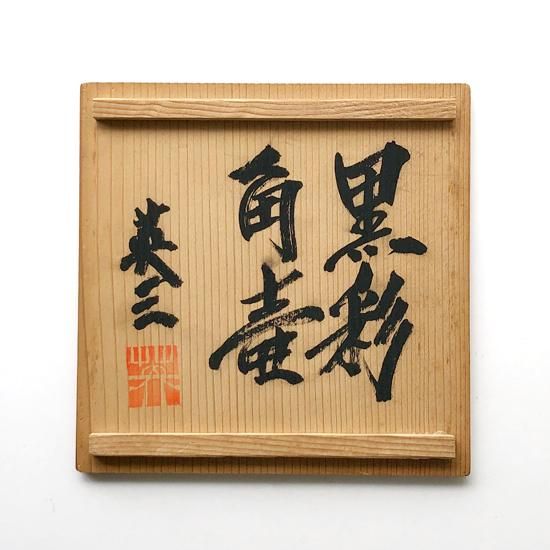 黒彩
角壷
英三